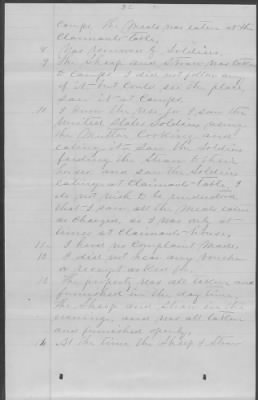 camp. The Meals was eaten at the
Claimants table.
8 Was removed by Soldiers.
9 The Sheep and Straw was taken
to camp. I did not follow any
of it - but could see the place,
saw it at camps.
10 I know the use for I saw the
United States Soldiers using
the Mutton Cooking and
eating it - Saw the Soldiers
feeding the Straw to their
horses and saw the Soldiers
eating at Claimants table, I
do not wish to be understood
that I saw all the Meals eaten
as charged, as I was only at
times at Claimants house.
11 I have no Complaint Made.
12 I did not hear any voucher
or receipt asked for.
13 The property was all taken and
furnished in the day time,
the Sheep and Straw in the
evening, and was all taken
and furnished openly.
14 At the time the Sheep & Straw